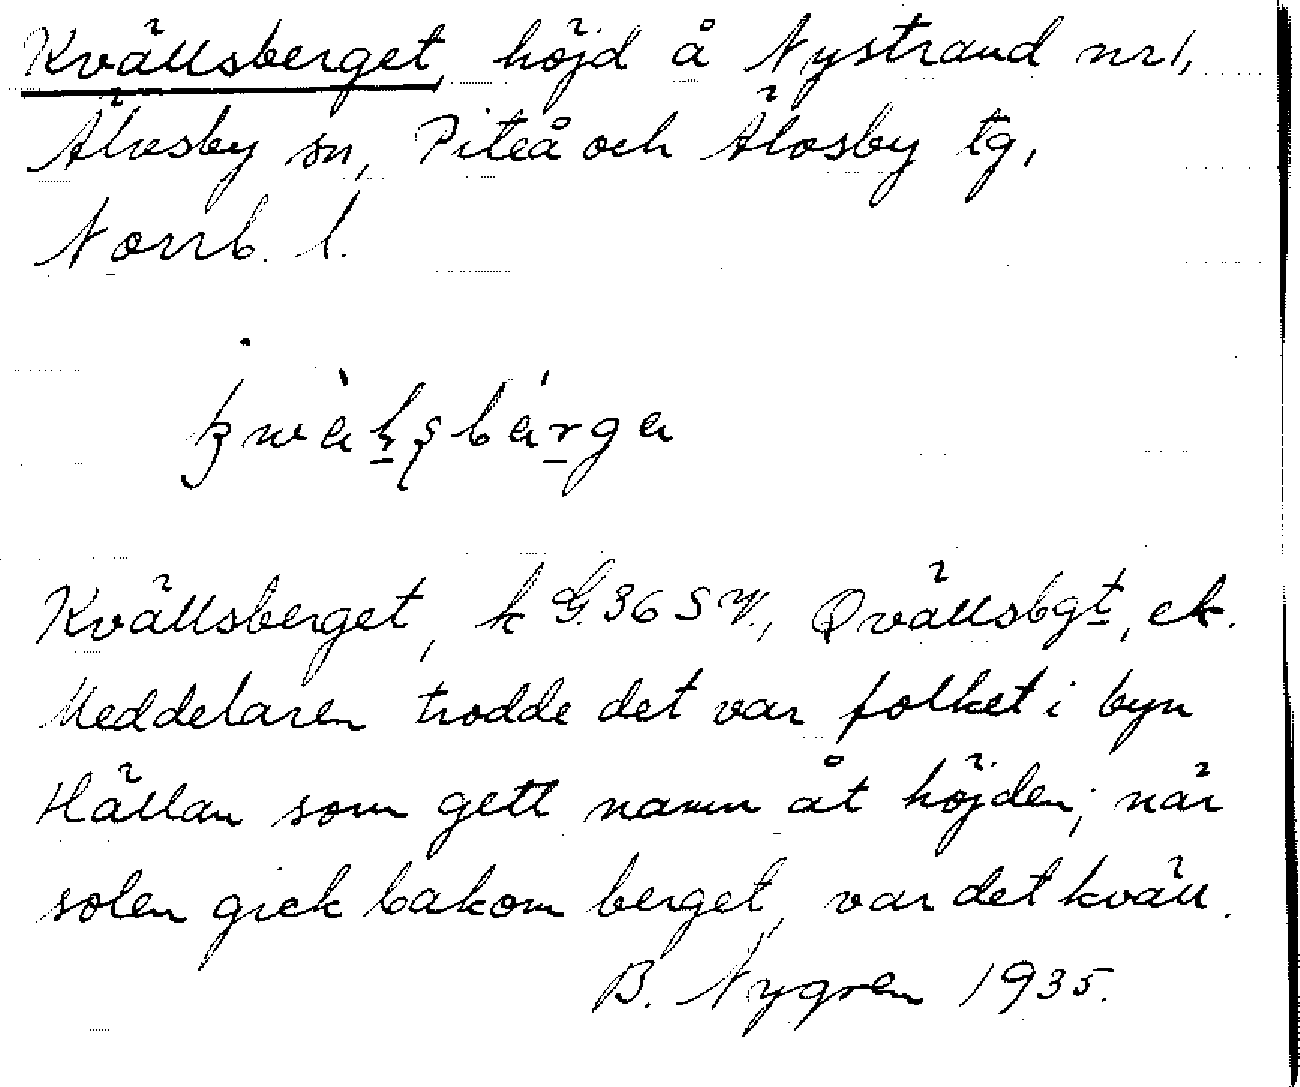 Kvällsberget, höjd å Nystrand nr 1,
Älvsby sn, Piteå och Älvsby tg,
Norrb. l.
Kvällsberget, k G. 36 SV., Qvällsbgt, ek.
Meddelaren trodde det var folket i byn
Hällan som gett namn åt höjden; när
solen gick bakom berget, var det kväll.
B. Nygren 1935.